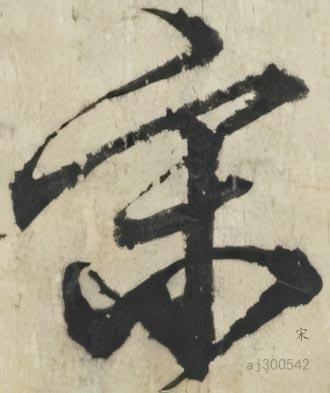 宋
宋
aj300542